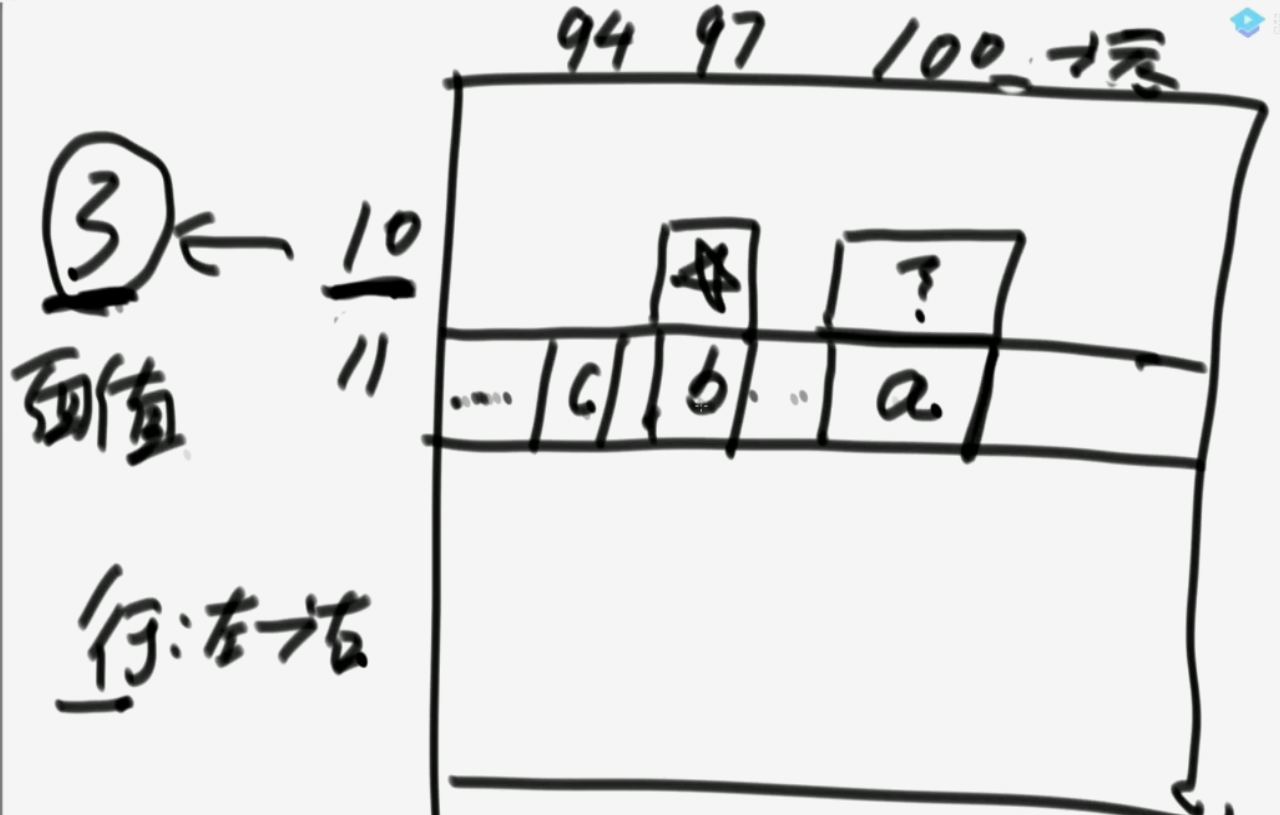 94 97 100
3 ← 10
☆ ?
11
…… c b … a
行:左→右